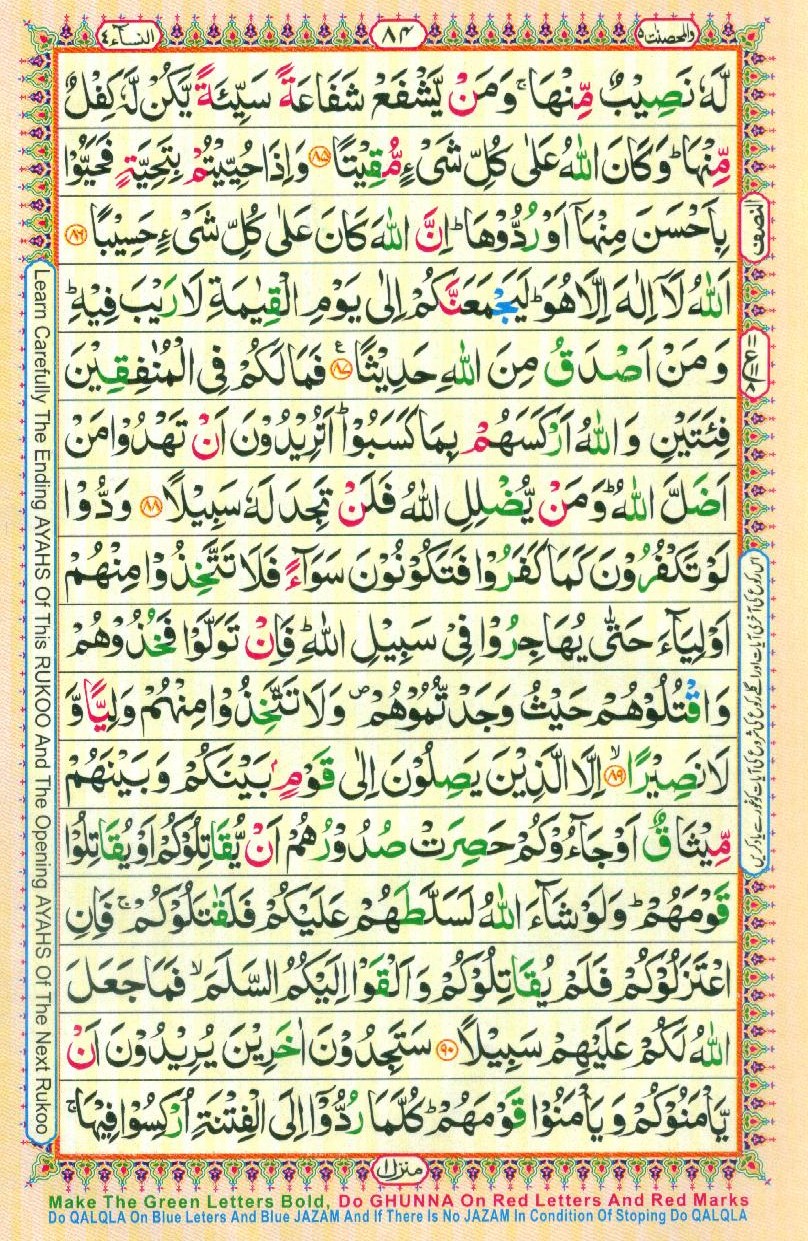 والمحصنت ۵
۸۴
النساء ۴
لَّهٗ نَصِیْبٌ مِّنْهَا ۚ وَمَنْ یَّشْفَعْ شَفَاعَةً سَیِّئَةً یَّكُنْ لَّهٗ كِفْلٌ
مِّنْهَا ؕ وَكَانَ اللّٰهُ عَلٰی كُلِّ شَیْءٍ مُّقِیْتًا ۝۸۵ وَاِذَا حُیِّیْتُمْ بِتَحِیَّةٍ فَحَیُّوْا
بِاَحْسَنَ مِنْهَاۤ اَوْ رُدُّوْهَا ؕ اِنَّ اللّٰهَ كَانَ عَلٰی كُلِّ شَیْءٍ حَسِیْبًا ۝۸۶
اَللّٰهُ لَاۤ اِلٰهَ اِلَّا هُوَ ؕ لَیَجْمَعَنَّكُمْ اِلٰی یَوْمِ الْقِیٰمَةِ لَا رَیْبَ فِیْهِ ؕ
وَمَنْ اَصْدَقُ مِنَ اللّٰهِ حَدِیْثًا ۝۸۷ ع فَمَا لَكُمْ فِی الْمُنٰفِقِیْنَ
فِئَتَیْنِ وَاللّٰهُ اَرْكَسَهُمْ بِمَا كَسَبُوْا ؕ اَتُرِیْدُوْنَ اَنْ تَهْدُوْا مَنْ
اَضَلَّ اللّٰهُ ؕ وَمَنْ یُّضْلِلِ اللّٰهُ فَلَنْ تَجِدَ لَهٗ سَبِیْلًا ۝۸۸ وَدُّوْا
لَوْ تَكْفُرُوْنَ كَمَا كَفَرُوْا فَتَكُوْنُوْنَ سَوَآءً فَلَا تَتَّخِذُوْا مِنْهُمْ
اَوْلِیَآءَ حَتّٰی یُهَاجِرُوْا فِیْ سَبِیْلِ اللّٰهِ ؕ فَاِنْ تَوَلَّوْا فَخُذُوْهُمْ
وَاقْتُلُوْهُمْ حَیْثُ وَجَدْتُّمُوْهُمْ ۪ وَلَا تَتَّخِذُوْا مِنْهُمْ وَلِیًّا وَّ
لَا نَصِیْرًا ۝۸۹ ۙ اِلَّا الَّذِیْنَ یَصِلُوْنَ اِلٰی قَوْمٍۭ بَیْنَكُمْ وَبَیْنَهُمْ
مِّیْثَاقٌ اَوْ جَآءُوْكُمْ حَصِرَتْ صُدُوْرُهُمْ اَنْ یُّقَاتِلُوْكُمْ اَوْ یُقَاتِلُوْا
قَوْمَهُمْ ؕ وَلَوْ شَآءَ اللّٰهُ لَسَلَّطَهُمْ عَلَیْكُمْ فَلَقٰتَلُوْكُمْ ۚ فَاِنِ
اعْتَزَلُوْكُمْ فَلَمْ یُقَاتِلُوْكُمْ وَاَلْقَوْا اِلَیْكُمُ السَّلَمَ ۙ فَمَا جَعَلَ
اللّٰهُ لَكُمْ عَلَیْهِمْ سَبِیْلًا ۝۹۰ سَتَجِدُوْنَ اٰخَرِیْنَ یُرِیْدُوْنَ اَنْ
یَّاْمَنُوْكُمْ وَیَاْمَنُوْا قَوْمَهُمْ ؕ كُلَّمَا رُدُّوْۤا اِلَی الْفِتْنَةِ اُرْكِسُوْا فِیْهَا ۚ
النصف
اس رکوع کی آخری آیات اور اگلے رکوع کی شروع کی آیات کو غور سے یاد کریں
Learn Carefully The Ending AYAHS Of This RUKOO And The Opening AYAHS Of The Next Rukoo
منزل ۱
Make The Green Letters Bold, Do GHUNNA On Red Letters And Red Marks
Do QALQLA On Blue Leters And Blue JAZAM And If There Is No JAZAM In Condition Of Stoping Do QALQLA